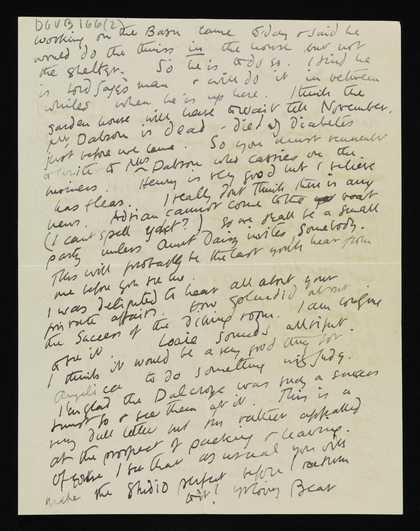 DGVB 166(2)
working on the Barn came today & said he
would do the things in the house but not
the shelter. So he is to do so. I find he
is Lord Gage's man & will do it in between
whiles when he is up here. I think the
garden house will have to wait till November.
Mr Dobson is dead - died of Diabetes
just before we came. So you must remember
to write to Mrs Dobson who carries on the
business. Henry is very good but I believe
has fleas. I really don't think there is any
news. Adrian cannot come to the yoat
(I can't spell yaet?) so we shall be a small
party unless Aunt Daisy invites somebody.
This will probably be the last you'll hear from
me before you see me.
I was delighted to hear all about your
private affairs. How splendid about
the success of the dining room. I am longing
to see it. Louie sounds all right.
I think it would be a very good thing for
Angelica to do something with Judy.
I'm glad the Dalcroze was such a success
I must go & see them at it. This is a
very dull letter but I'm rather appalled
at the prospect of packing & leaving.
Of course I see that as usual you will
make the Studio perfect before I return
to it! Yr loving Bear